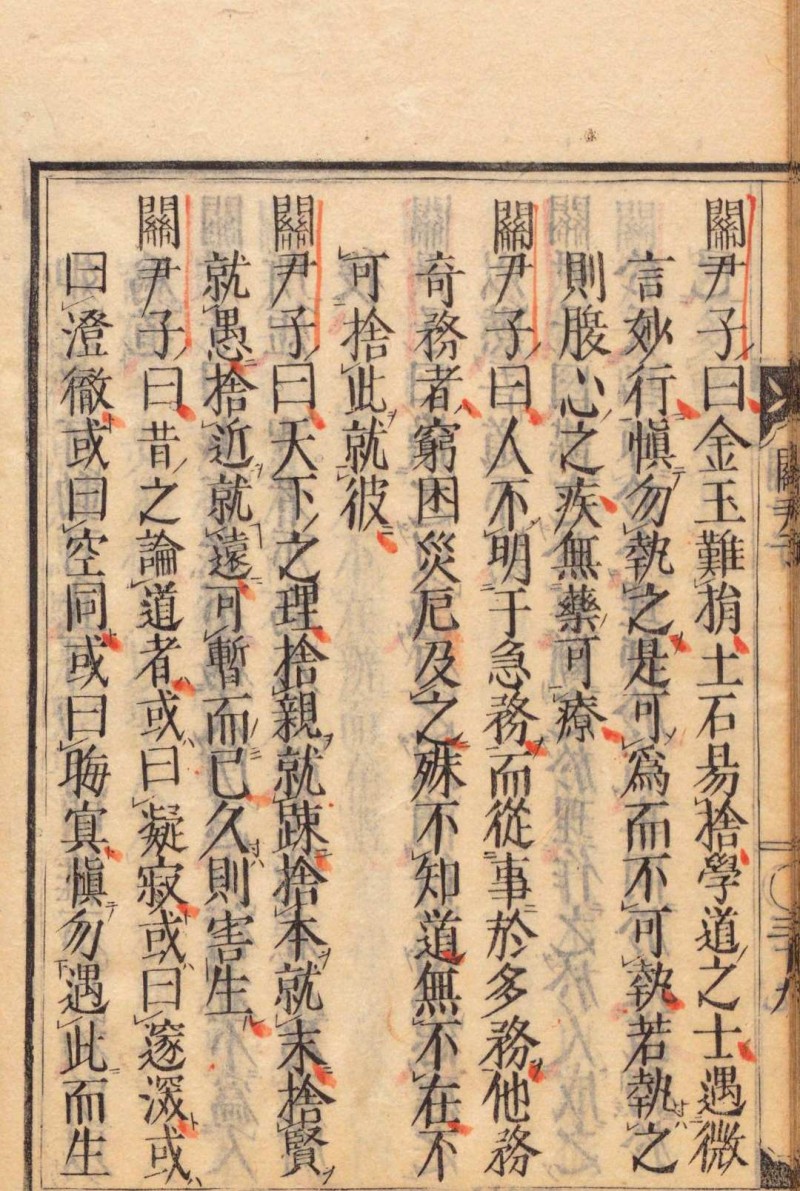 關尹子曰金玉難捐土石易捨學道之士遇微
言妙行慎勿執之是可爲而不可執若執之
則腹心之疾無藥可療
關尹子曰人不明于急務而從事於多務他務
奇務者窮困災厄及之殊不知道無不在不
可捨此就彼
關尹子曰天下之理捨親就踈捨本就末捨賢
就愚捨近就遠可暫而已久則害生
關尹子曰昔之論道者或曰凝寂或曰邃深或
曰澄徹或曰空同或曰晦冥慎勿遇此而生
關尹子